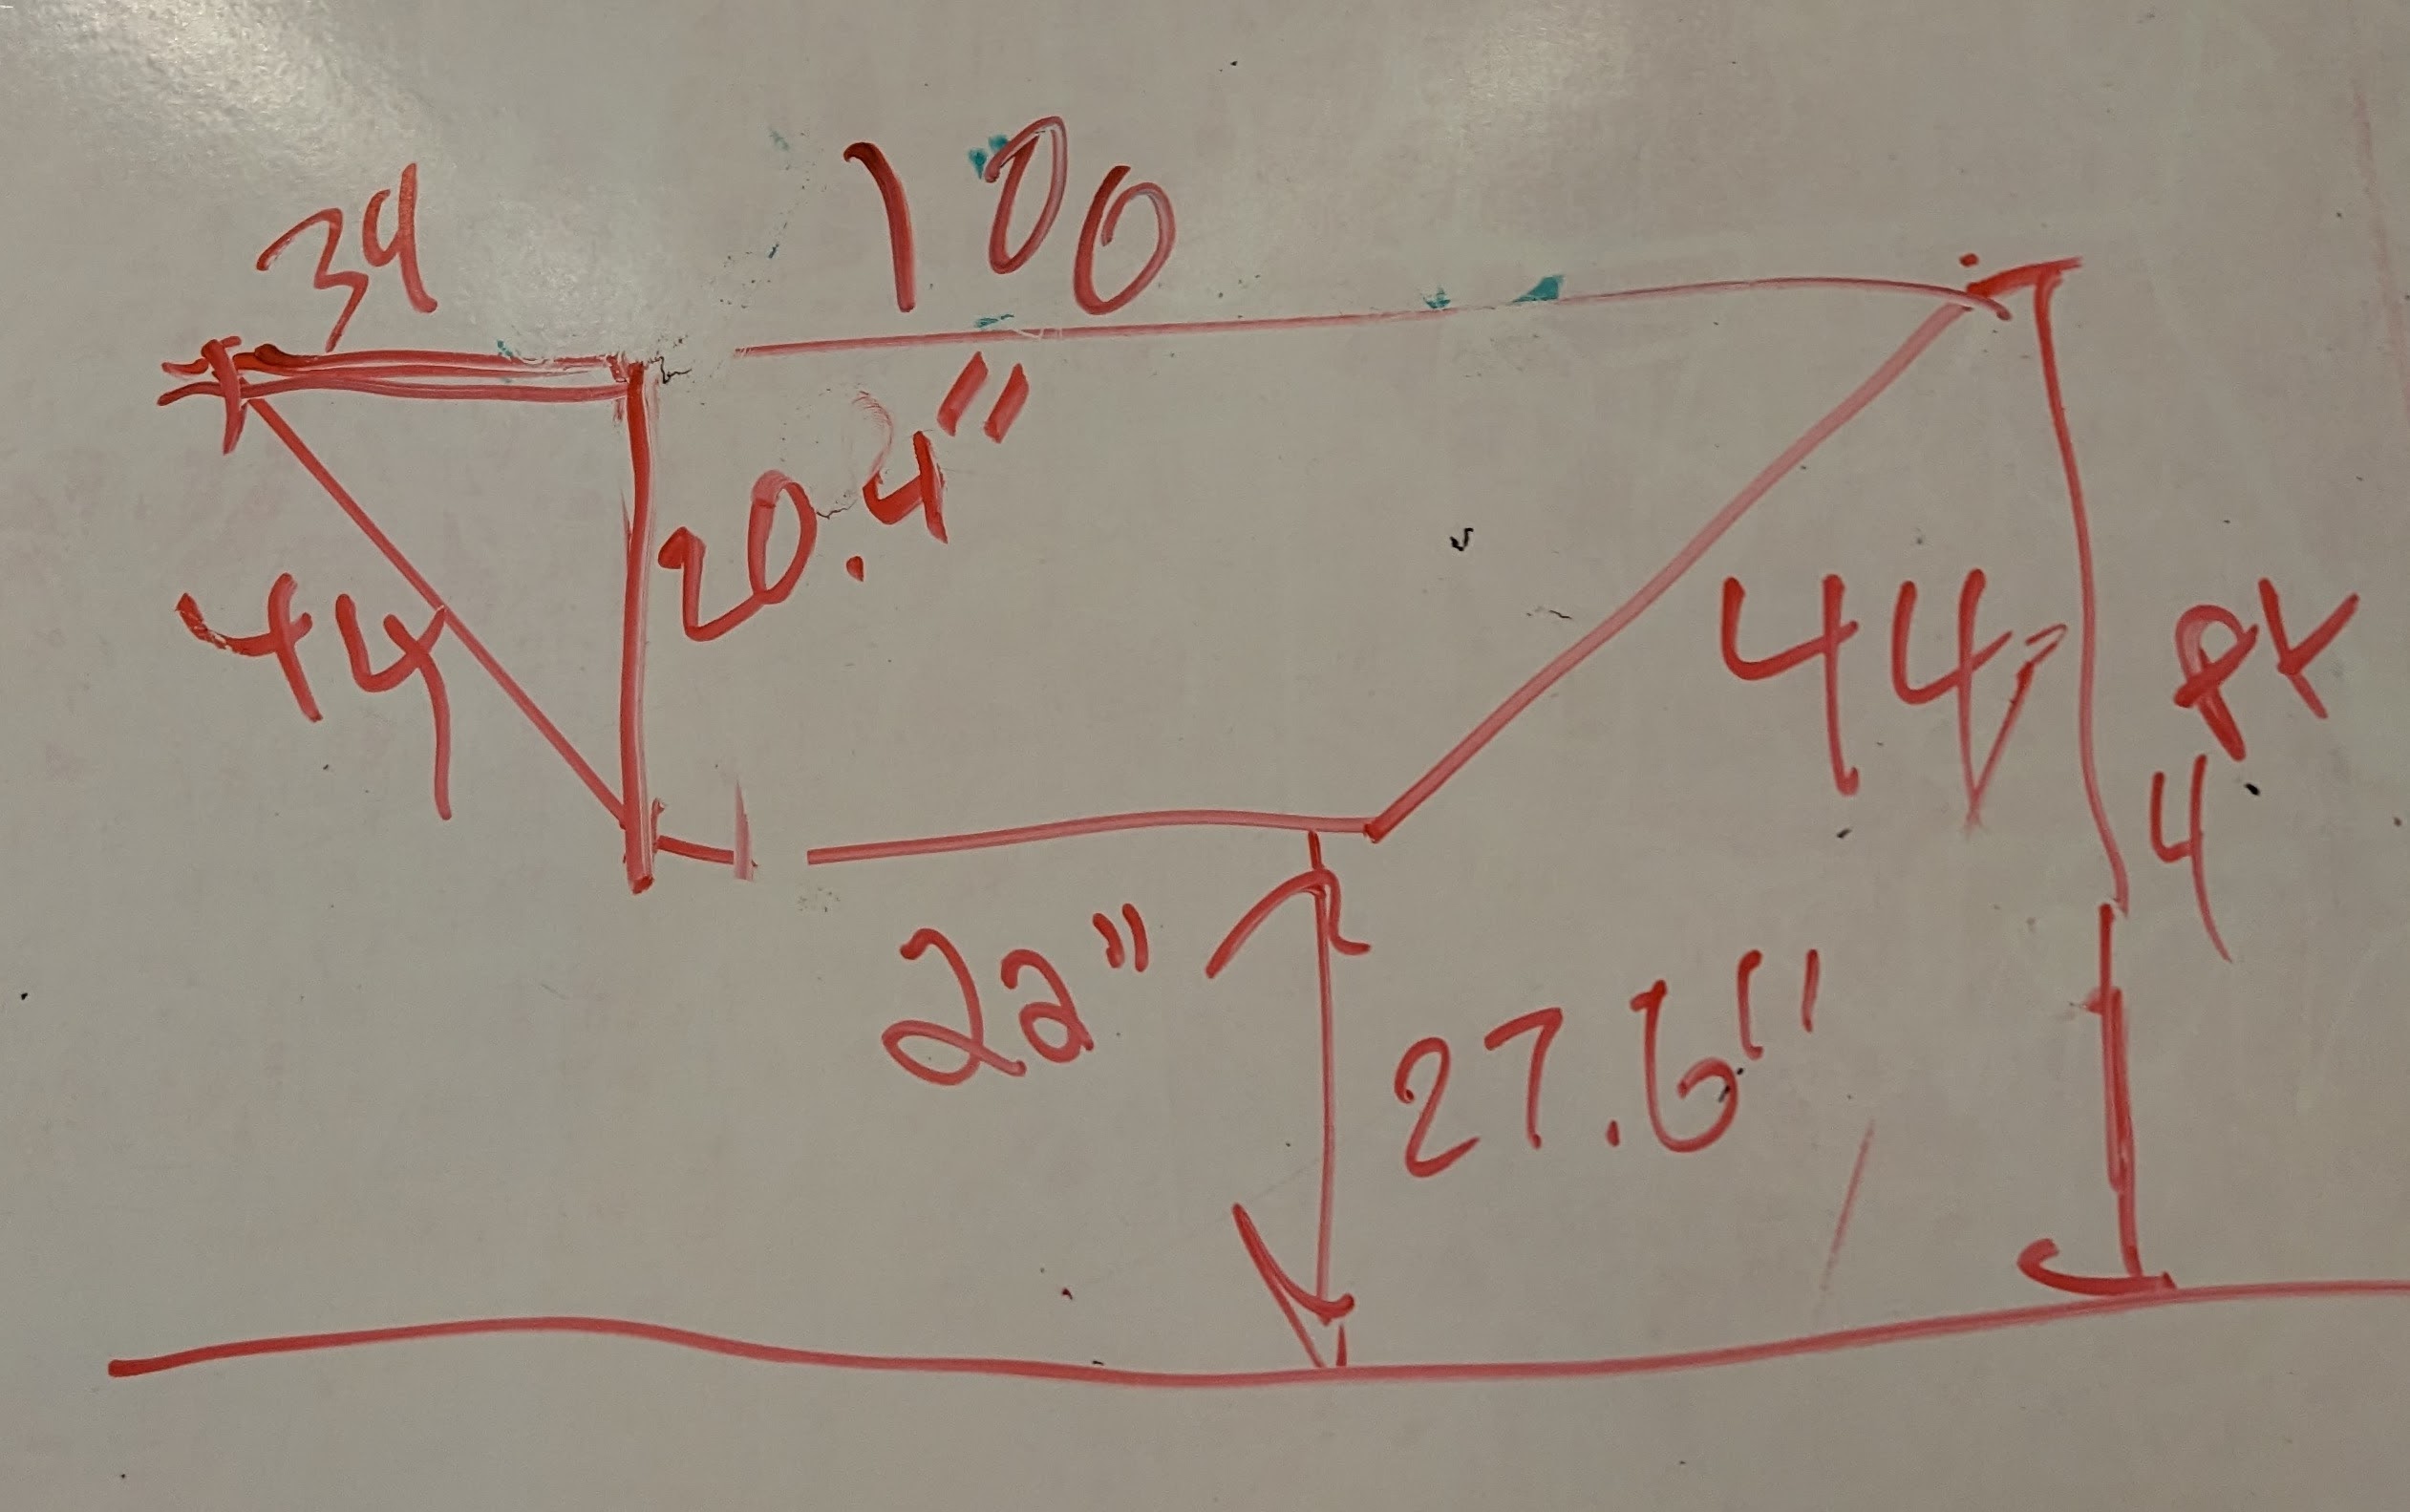 39
100
20.4"
44
44
4
22"
27.6"